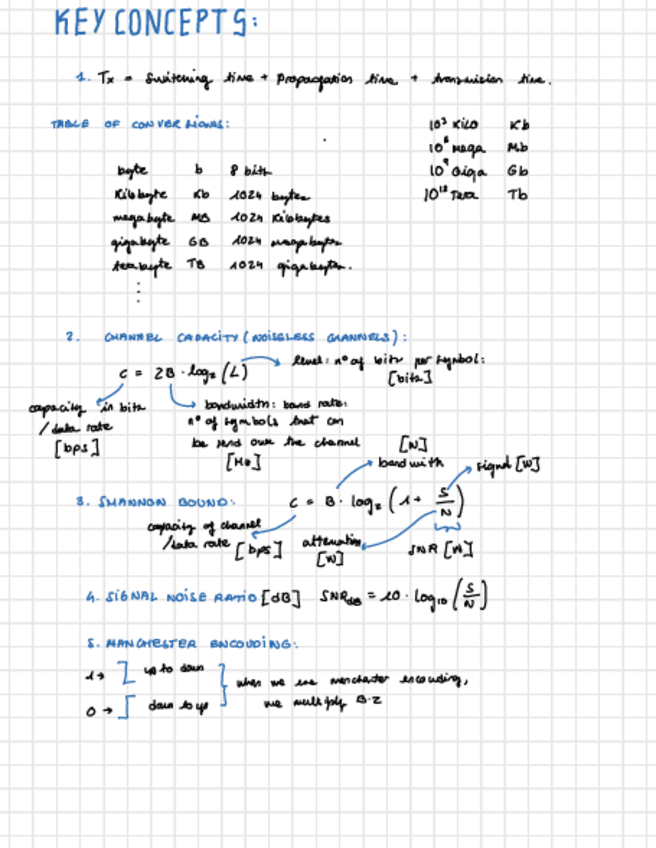 KEY CONCEPTS:
1. Tx = Switching time + Propagation time + transmission time.
TABLE OF CONVERSIONS:
10³ Kilo Kb
10⁶ mega Mb
10⁹ Giga Gb
10¹² Tera Tb
byte b 8 bits
Kilobyte Kb 1024 bytes
megabyte MB 1024 Kilobytes
gigabyte GB 1024 megabytes
terabyte TB 1024 gigabytes.
2. CHANNEL CAPACITY (NOISELESS CHANNELS):
C = 2B · log₂ (L)
level: nº of bits per symbol:
[bits]
capacity in bits
/data rate
[bps]
bandwidth: baud rate:
nº of symbols that can
be send over the channel
[Hz]
3. SHANNON BOUND:
C = B · log₂ (1 + S/N)
[W]
bandwith
signal [W]
capacity of channel
/data rate [bps]
attenuation
[W]
SNR [W]
4. SIGNAL NOISE RATIO [dB] SNRdB = 10 · log₁₀ (S/N)
5. MANCHESTER ENCOUDING:
1 → up to down
0 → down to up
when we use manchester encouding,
we multiply B·2